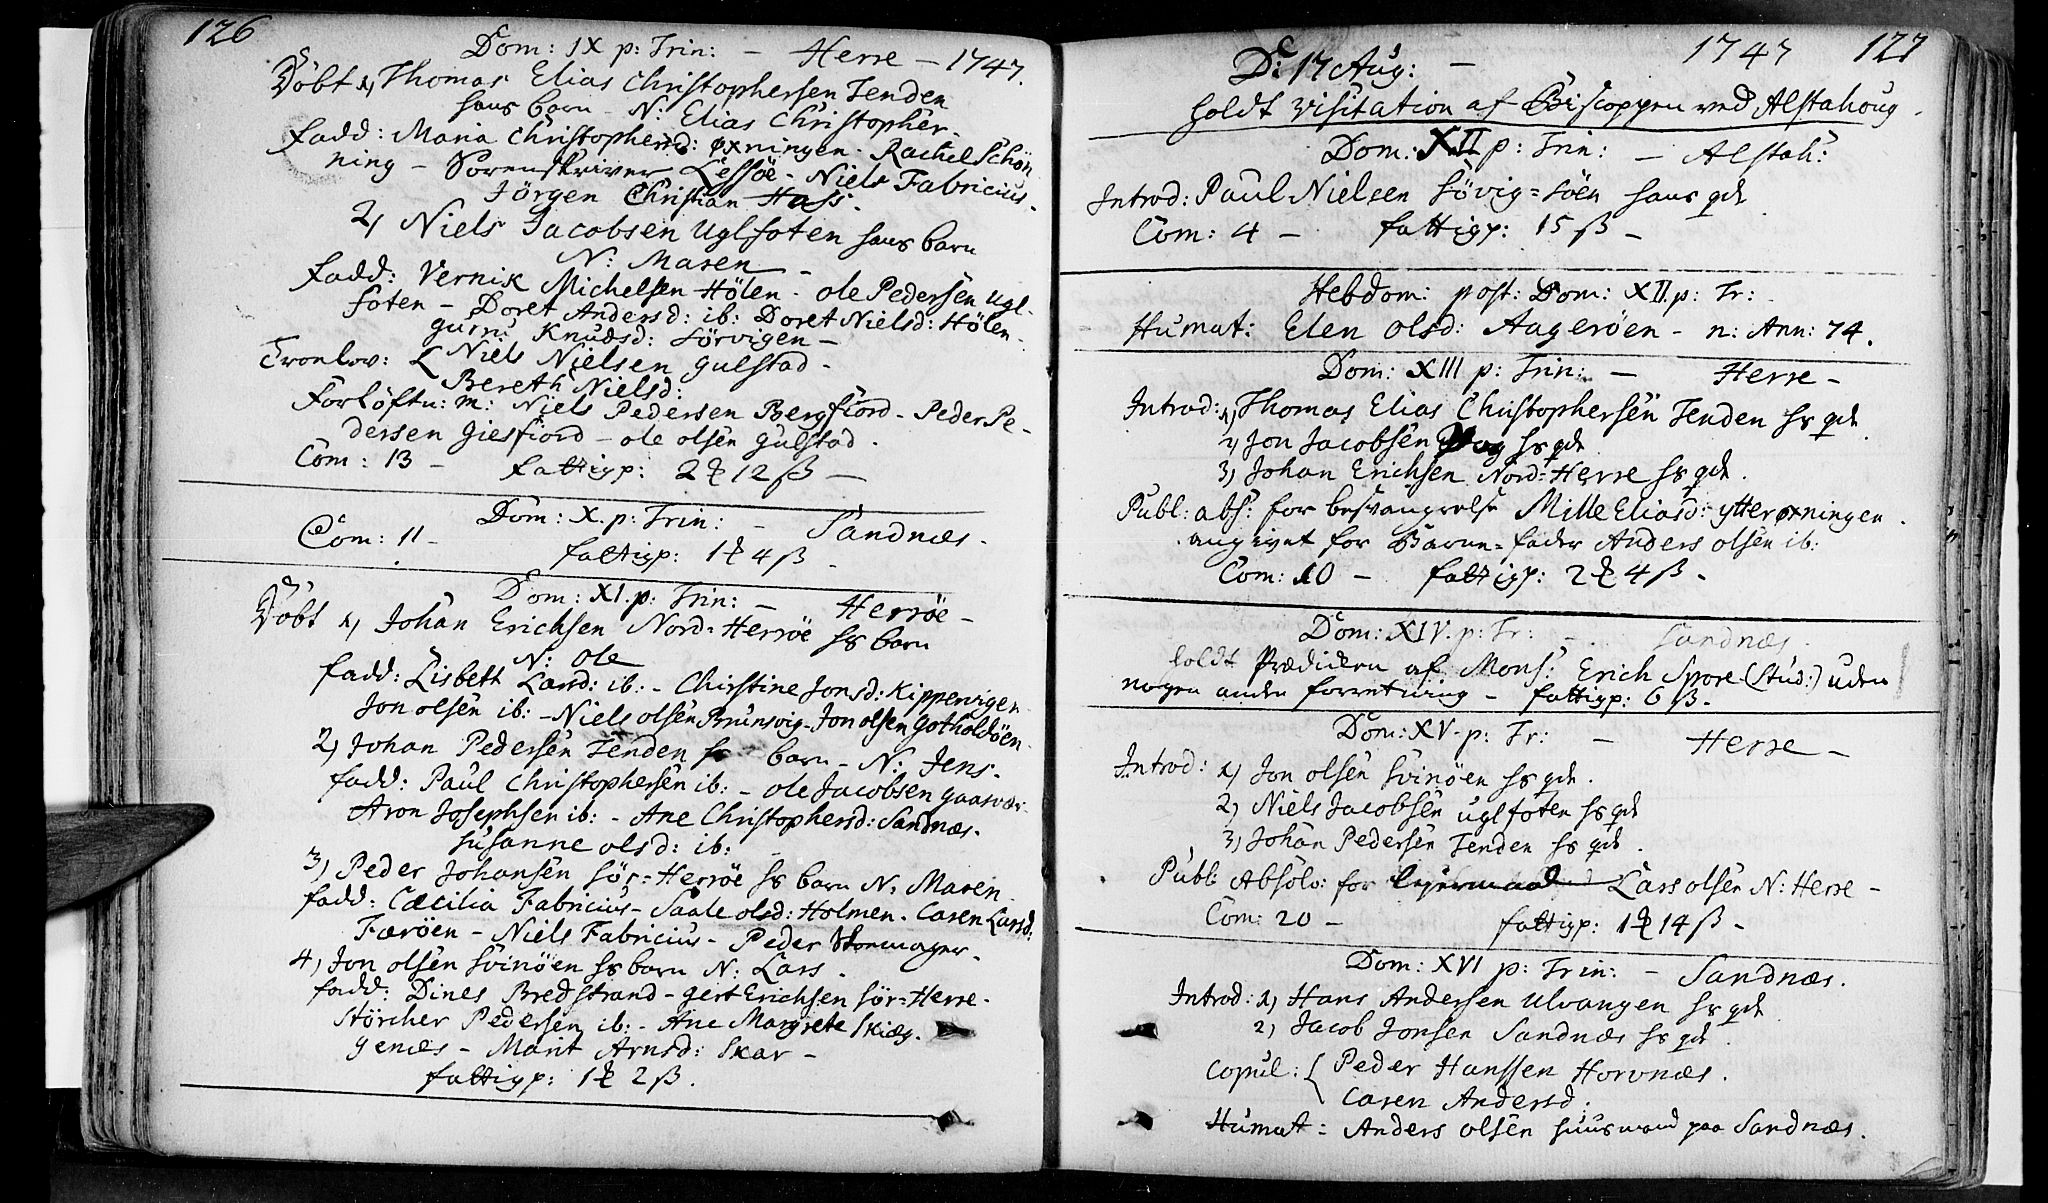 126
Dom: IX p: Trin: — Herre — 1747.
Döbt 1, Thomas Elias Christophersen Tenden
hans barn - N: Elias Christopher.
fadd: Maria Christophersd: øxningen - Rachel Schön
ning - Sorenskriver Lessöe - Niels Fabricius -
Jörgen Christian Hass.
2, Niels Jacobsen Uglfoten hans barn
N: Maren -
fadd: Vernik Michelsen Hölen - ole Pedersen Ugl-
foten - Doret Andersd: ib: Doret Nielsd: Hölen -
gurru Knudsd: Sörvigen -
Tronlov: { Niels Nielsen gulstad -
Bereth Nielsd:
Forlöftn: m: Niels Pedersen Bergfiord - Peder Pe-
dersen giesfiord - ole olsen gulstad.
Com: 13 - fattigp: 2 ₰ 12 ß —
Dom: X. p: Trin: — Sandnæs.
Com: 11 -
fattigp: 1 ₰ 4 ß -
Dom: XI. p: Trin: — Herröe -
Döbt 1, Johan Erichsen Nord=Herröe hs barn
N: ole
fadd: Lisbeth Larsd: ib: - Christine Jonsd: Kippervigen
Jon olsen ib: - Niels olsen Brunsvig - Jon olsen gotholdöen -
2, Johan Pedersen Tenden hs barn - N: Jens.
fadd: Paul Christophersen ib: - ole Jacobsen gaasvær.
Aron Josephsen ib: - Ane Christophersd: Sandnæs.
Susanne olsd: ib:
3, Peder Johansen sör=Herröe hs barn N: Maren
fadd: Cæcilia Fabricius - Saale olsd: Holmen - Caren Larsd:
Færöen - Niels Fabricius - Peder Skomager.
4, Jon olsen Svinöen hs barn N: Lars.
fadd: Dines Bredstrand - gert Erichsen sör=Herre.
Störcher Pedersen ib: - Ane Margrete Skiæg.
genæs - Marit Arnsd: Skar -
fattigp: 1 ₰ 2 ß.
D: 17 Aug: — 1747 127
holdt visitation af Biscoppen ved Alstahoug.
Dom: XII p: Trin: — Alstah:
Introd: Paul Nielsen Sövig=söen hans qde
Com: 4 — fattigp: 15 ß -
Hebdom: post: Dom: XII. p: Tr:
Humat: Elen olsd: Aageröen - n: Ann: 74.
Dom: XIII p: Trin: — Herre -
Introd: 1, Thomas Elias Christophersen Tenden hs qde
2, Jon Jacobsen Vog hs qde
3, Johan Erichsen Nord=Herre hs qde.
Publ: abs: for besvangrelse Mille Eliasd: ytterøxningen.
angivet for Barne=fader Anders olsen ib:
Com: 10 - fattigp: 2 ₰ 4 ß -
Dom: XIV. p: Tr: - Sandnæs.
holdt Prædicken af Mons: Erich Spore (Stud:) uden
nogen anden forretning - fattigp: 6 ß.
Dom: XV. p: Tr: — Herre -
Introd: 1, Jon olsen Svinöen hs qde.
2, Niels Jacobsen uglfoten hs qde
3, Johan Pedersen Tenden hs qde.
Publ: Absolv: for lejermaal Lars olsen N: Herre -
Com: 20 - fattigp: 1 ₰ 14 ß -
Dom: XVI p: Trin: — Sandnæs.
Introd: 1, Hans Andersen Ulvangen hs qde
2, Jacob Jonsen Sandnæs hs qde.
Copul: { Peder Hanssen Horvnæs.
Caren Andersd:
Humat: Anders olsen huusmand paa Sandnæs.